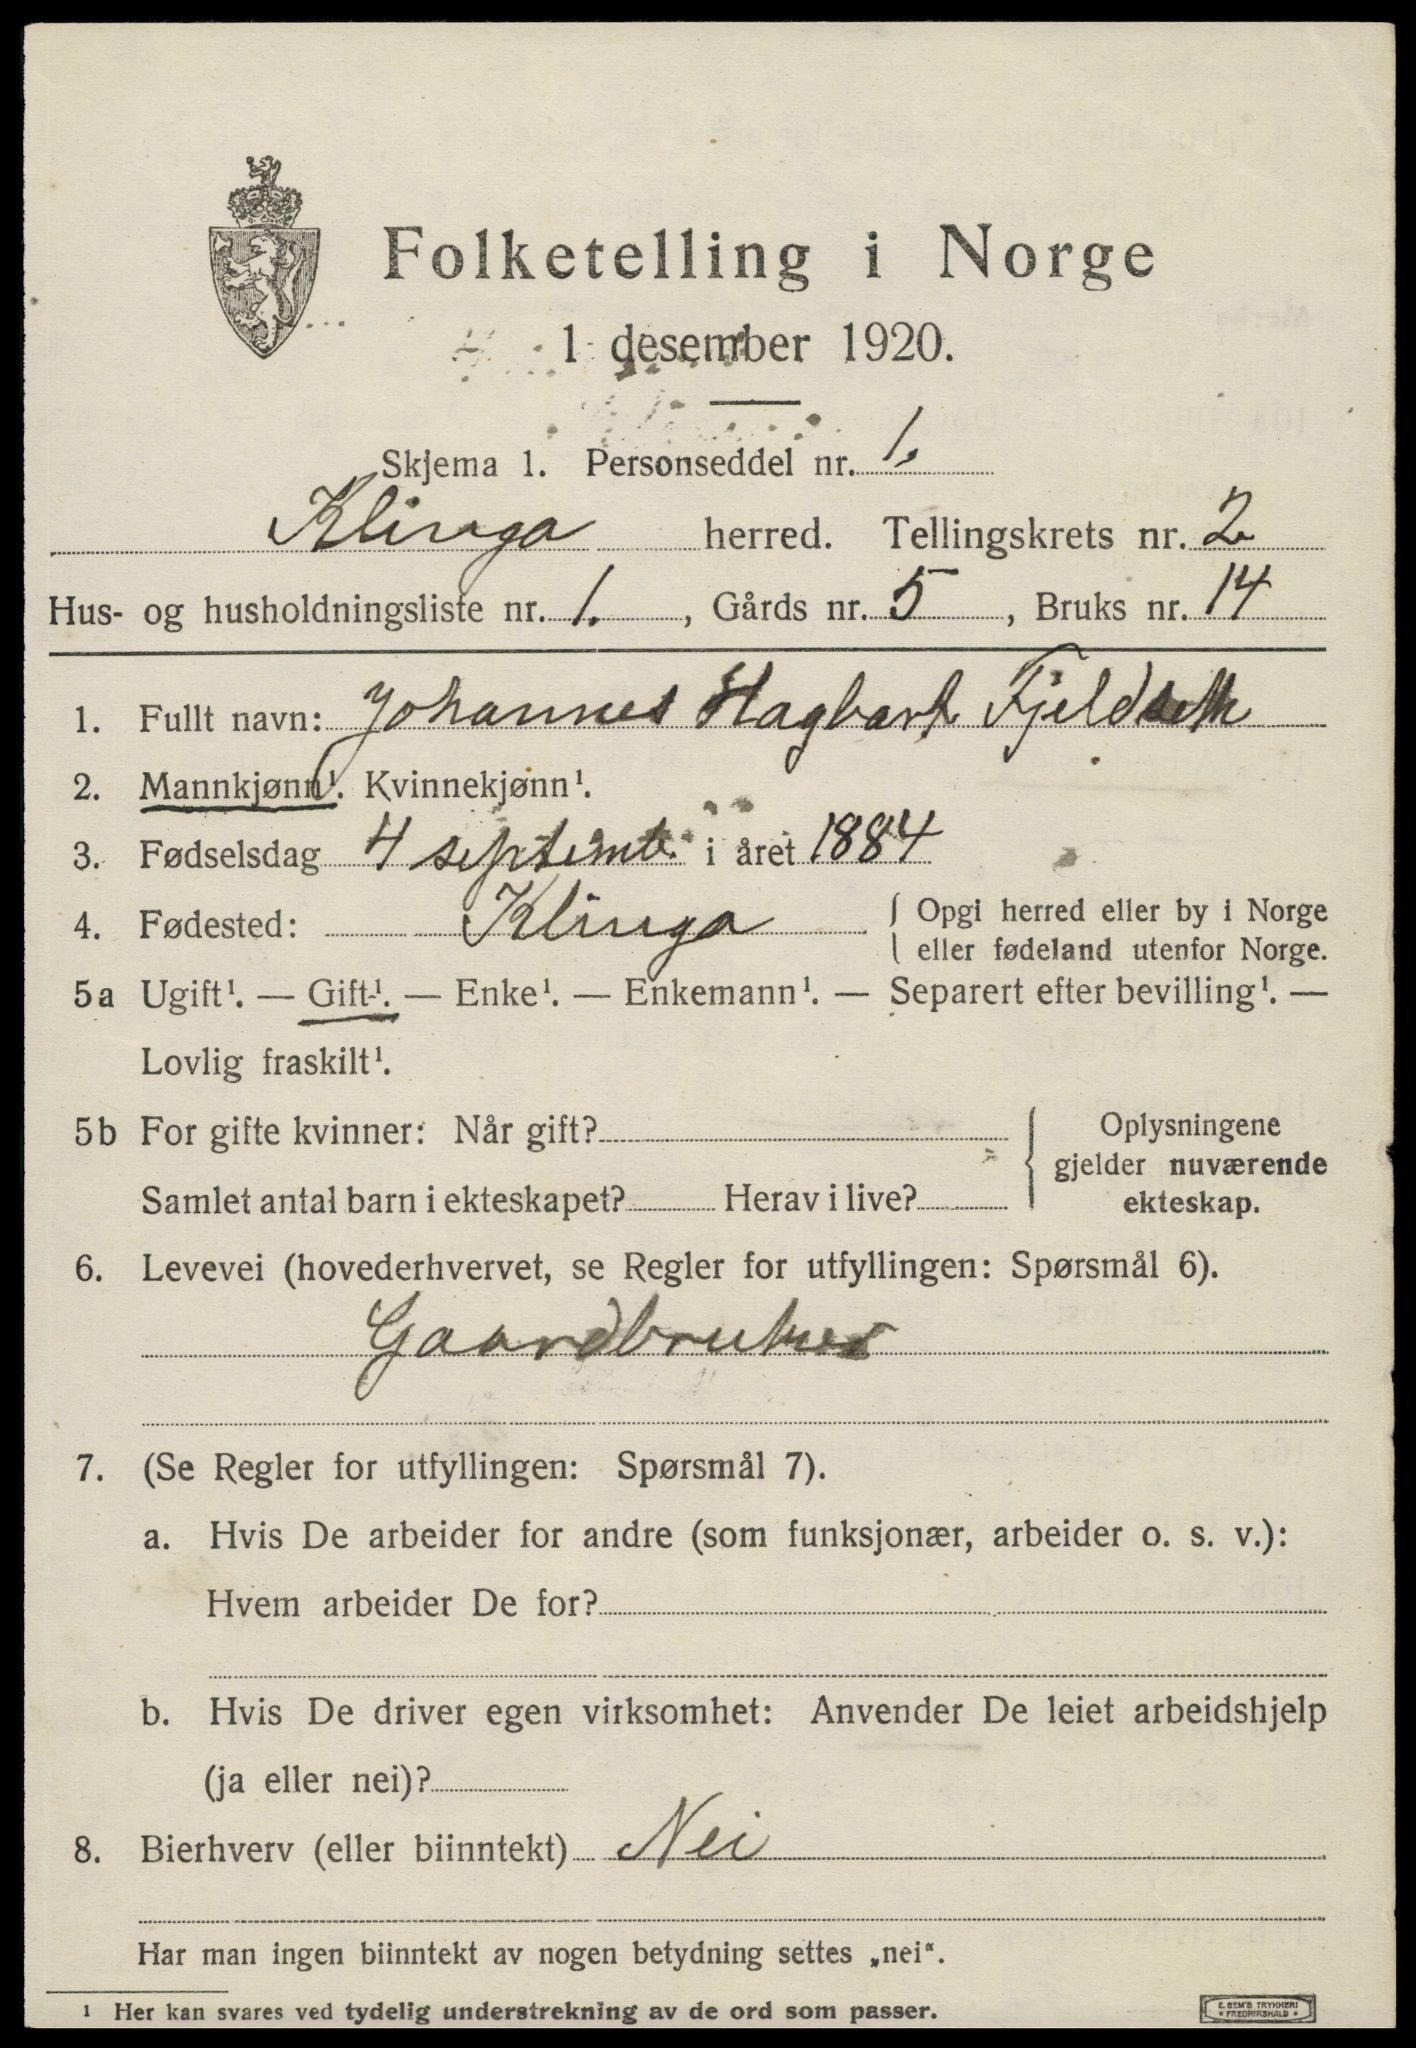 Folketelling i Norge
1 desember 1920.
Skjema 1. Personseddel nr. 1.
Klinga herred. Tellingskrets nr. 2
Hus- og husholdningsliste nr. 1. , Gårds nr. 5 , Bruks nr. 14
1. Fullt navn: Johannes Hagbart Fjeldseth
2. Mannkjønn¹. Kvinnekjønn¹.
3. Fødselsdag 4 septemb. i året 1884
4. Fødested: Klinga { Opgi herred eller by i Norge
eller fødeland utenfor Norge.
5a Ugift¹. — Gift¹. — Enke¹. — Enkemann¹. — Separert efter bevilling¹. —
Lovlig fraskilt¹.
5b For gifte kvinner: Når gift? { Oplysningene
gjelder nuværende
Samlet antal barn i ekteskapet? Herav i live? ekteskap.
6. Levevei (hovederhvervet, se Regler for utfyllingen: Spørsmål 6).
Gaardbruker
7. (Se Regler for utfyllingen: Spørsmål 7).
a. Hvis De arbeider for andre (som funksjonær, arbeider o. s. v.):
Hvem arbeider De for?
b. Hvis De driver egen virksomhet: Anvender De leiet arbeidshjelp
(ja eller nei)?
8. Bierhverv (eller biinntekt) Nei
Har man ingen biinntekt av nogen betydning settes „nei“.
¹ Her kan svares ved tydelig understrekning av de ord som passer.
E. SEM'S TRYKKERI
• FREDRIKSHALD •